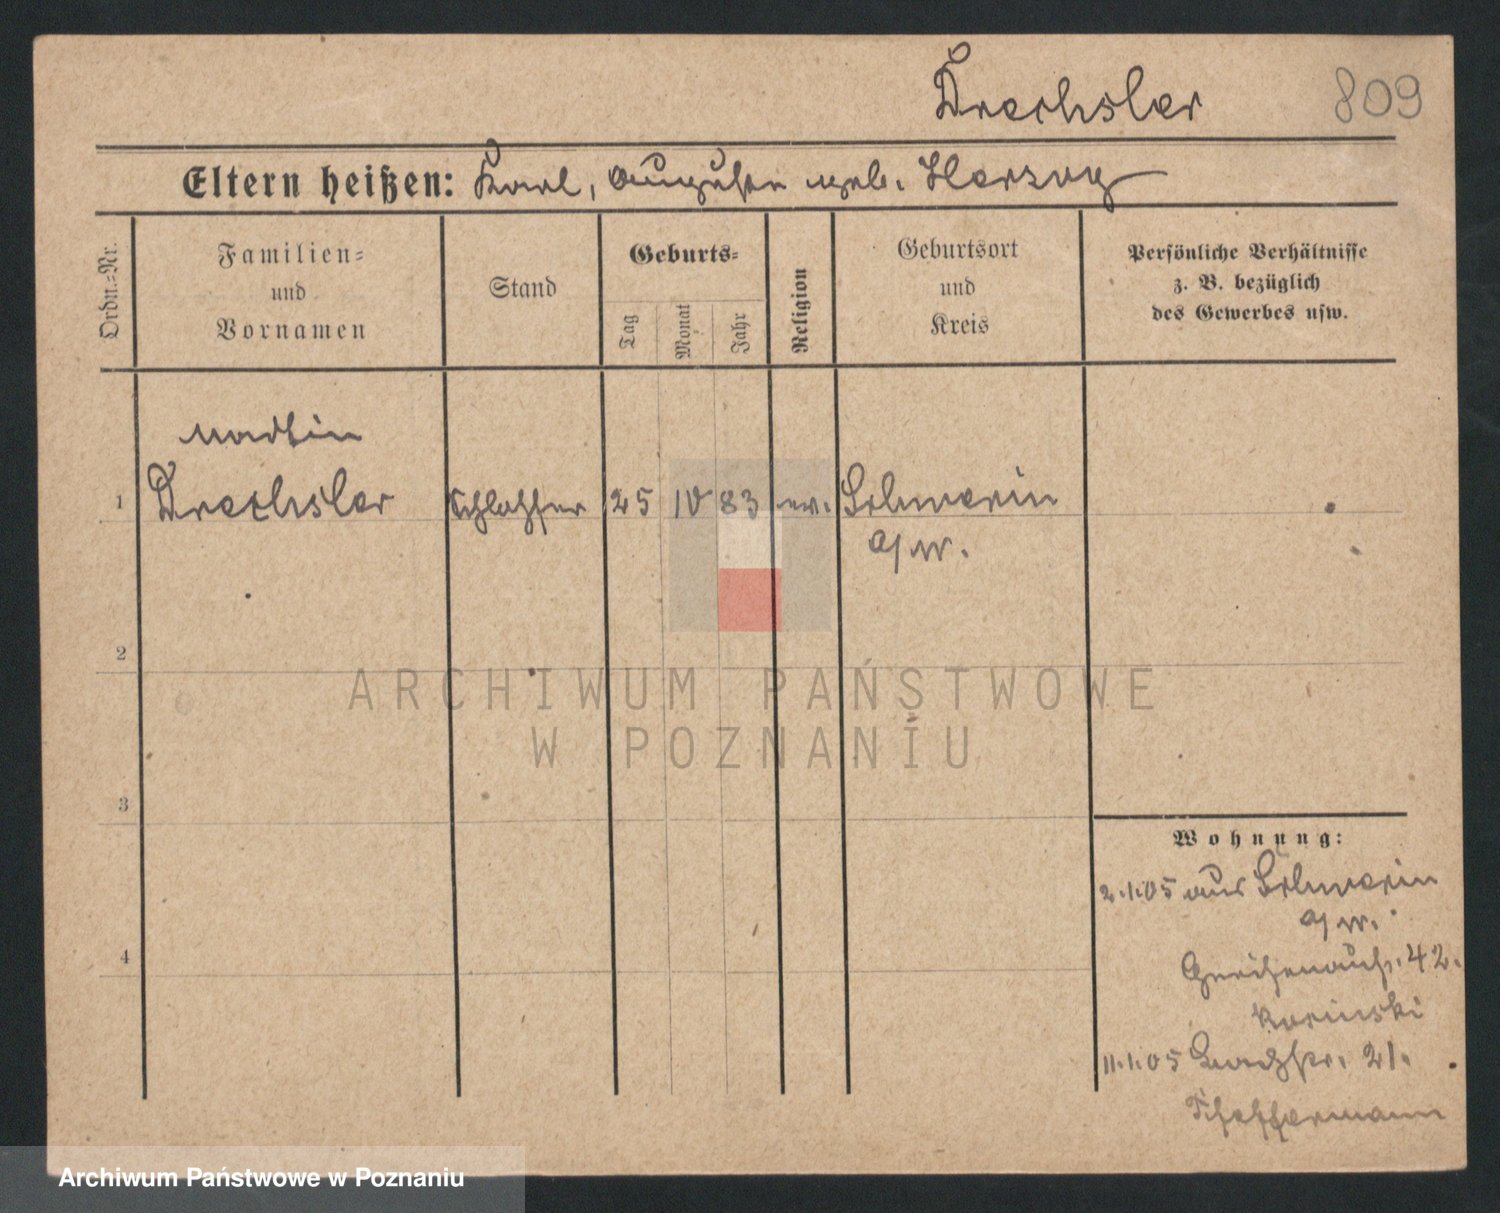 Drechsler 809
Eltern heißen: Karl, Auguste geb. Herzog
Ordn.-Nr.
Familien-
und
Vornamen
Stand
Geburts-
Tag
Monat
Jahr
Religion
Geburtsort
und
Kreis
Persönliche Verhältnisse
z. B. bezüglich
des Gewerbes usw.
Martin
1 Drechsler Schlosser 25 IV 83 ev. Schwerin
a/W.
2
3
4
Wohnung:
2.1.05 aus Schwerin
a/W.
42.
11.1.05 21.
ARCHIWUM PAŃSTWOWE
W POZNANIU
Archiwum Państwowe w Poznaniu